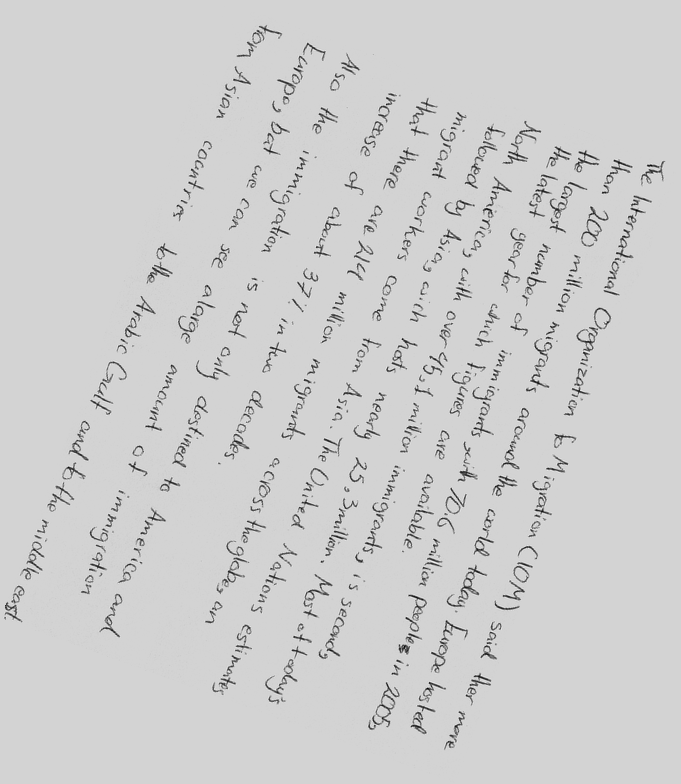 The International Organization to Migration (IOM) said ther more
than 200 million migrants around the world today. Europe hosted
the largest number of immigrants with 70.6 million people in 2005,
the latest year for which figures are available.
North America, with over 45.1 million immigrants, is second,
followed by Asia, wich hosts nearly 25,3 million. Most of today's
migrant workers come from Asia. The United Nations estimates
that there are 214 million migrants across the globe, an
increase of about 37% in two decades.
Also the immigration is not only destined to America and
Europe, but we can see a large amount of immigration
from Asian countries to the Arabic Gulf and to the middle east.